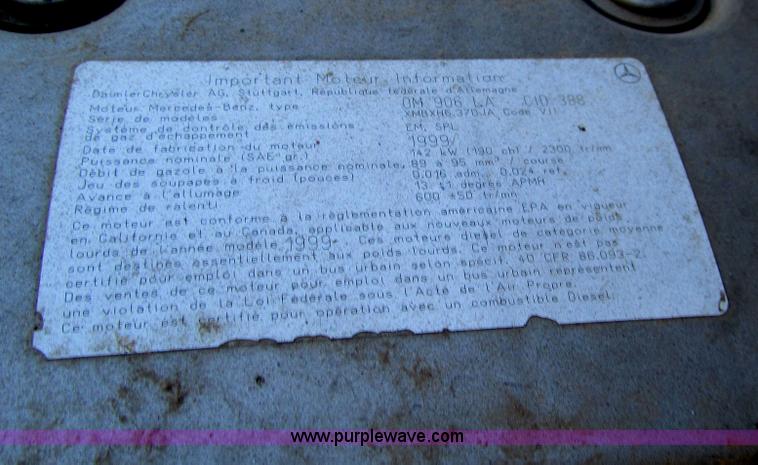 Important Moteur Information
DaimlerChrysler AG, Stuttgart, République fédérale d'Allemagne
Moteur Mercedes-Benz, type OM 906 LA CID 388
Série de modèles XMBXH6.370JA, Code VII
Système de contrôle des émissions
de gaz d'échappement EM, SPL
Date de fabrication du moteur 1999/
Puissance nominale (SAE gr.) 142 kW (190 ch) / 2300 tr/mn
Débit de gazole à la puissance nominale, 89 à 95 mm³ / course
Jeu des soupapes à froid (pouces) 0.016 adm., 0.024 ref.
Avance à l'allumage 13 ±1 degrés APMH
Régime de ralenti 600 ±50 tr/mn
Ce moteur est conforme à la réglementation américaine EPA en vigueur
en Californie et au Canada, applicable aux nouveaux moteurs de poids
lourds de l'année modèle 1999. Ces moteurs diesel de catégorie moyenne
sont destinés essentiellement aux poids lourds. Ce moteur n'est pas
certifié pour emploi dans un bus urbain selon spécif. 40 CFR 86.093-2.
Des ventes de ce moteur pour emploi dans un bus urbain représentent
une violation de la Loi Fédérale sous l'Acte de l'Air Propre.
Ce moteur est certifié pour opération avec un combustible Diesel.
www.purplewave.com